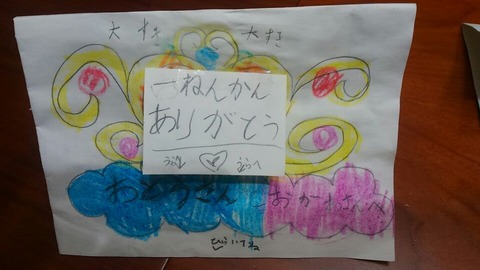 大すき 大すき
一ねんかん
ありがとう
うらへ
おとうさん おかあさんへ
ひらいてね